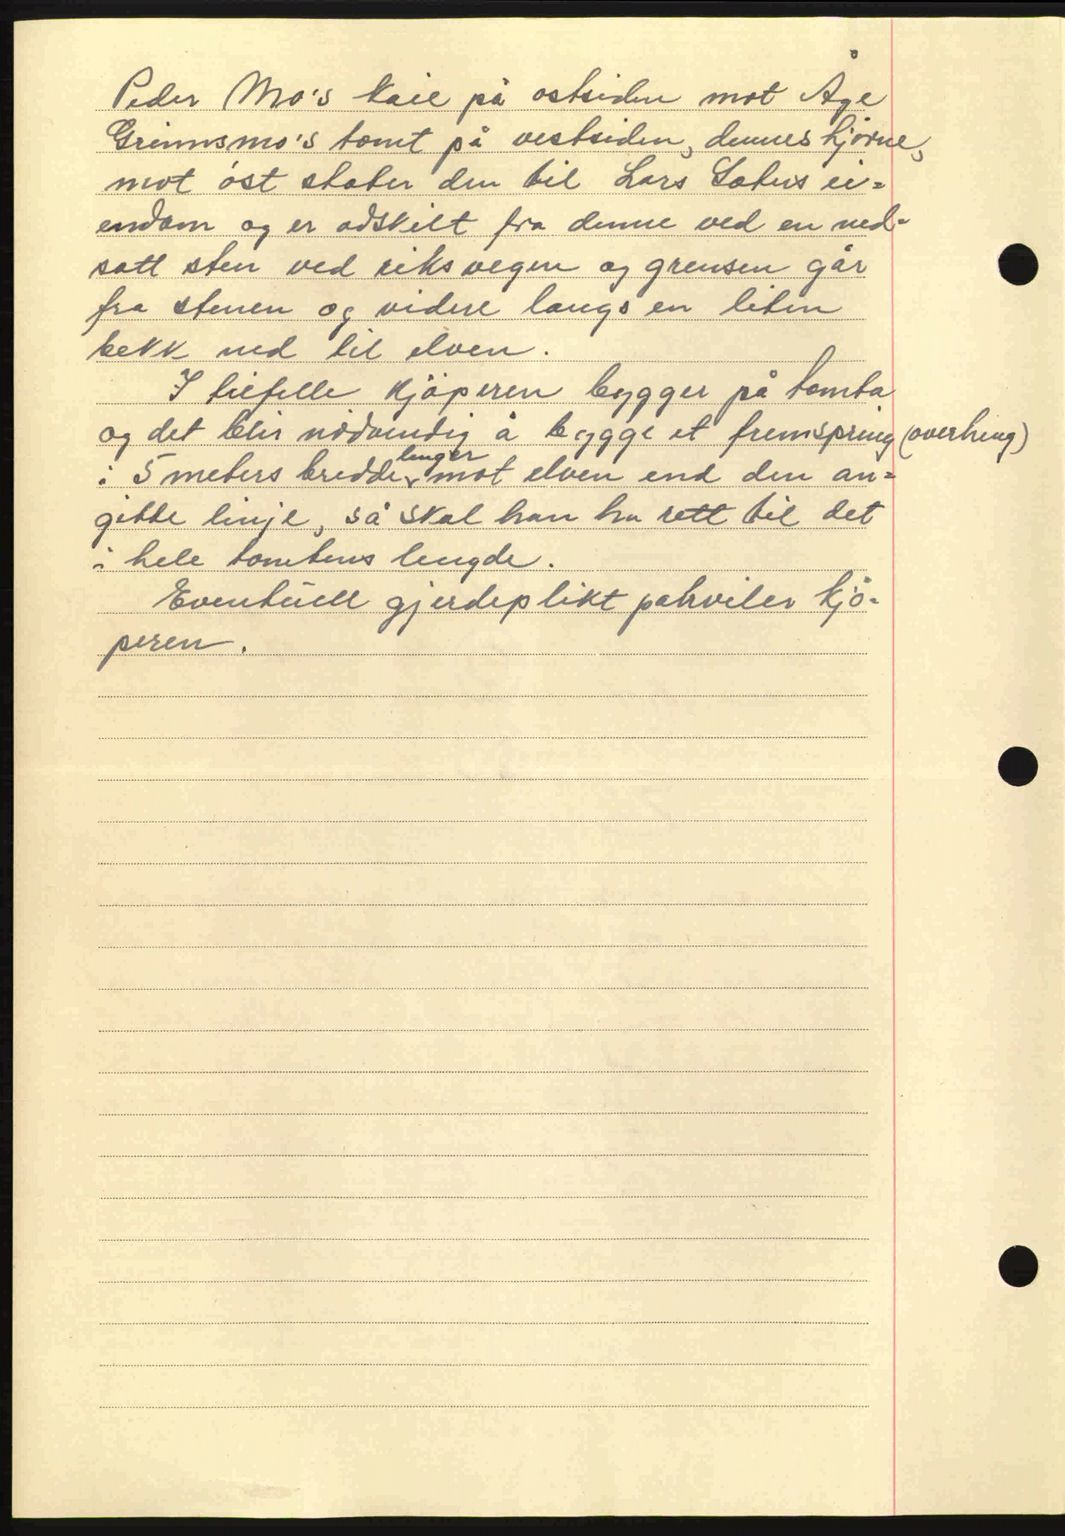 Peder Mo's kaie på ostsiden mot Åge
Grinnsmo's tomt på vestsiden, dennes hjörne,
mot öst støter den til Lars Sæters ei=
endom og er adskilt fra denne ved en ned=
satt sten ved riksvegen og grensen går
fra stenen og videre langs en liten
bekk ned til elven.
I tilfelle kjöperen bygger på tomta
og det blir nödvendig å bygge et fremspring (overheng)
i 5 meters bredde lenger mot elven end den an=
gitte linje, så skal han ha rett til det
i hele tomtens lengde.
Eventüell gjerdeplikt pahviler kjö=
peren.